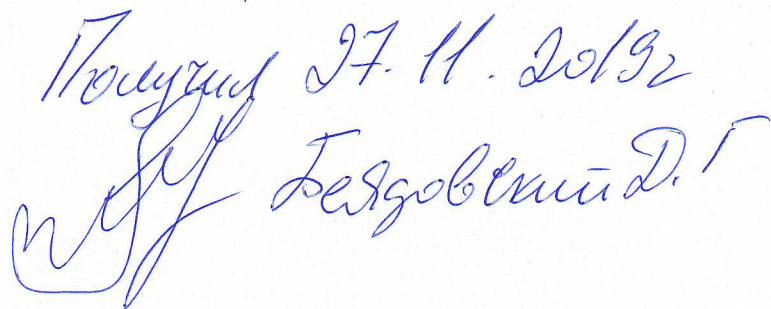 Получил 27.11.2019г
Беядовский Д.Г